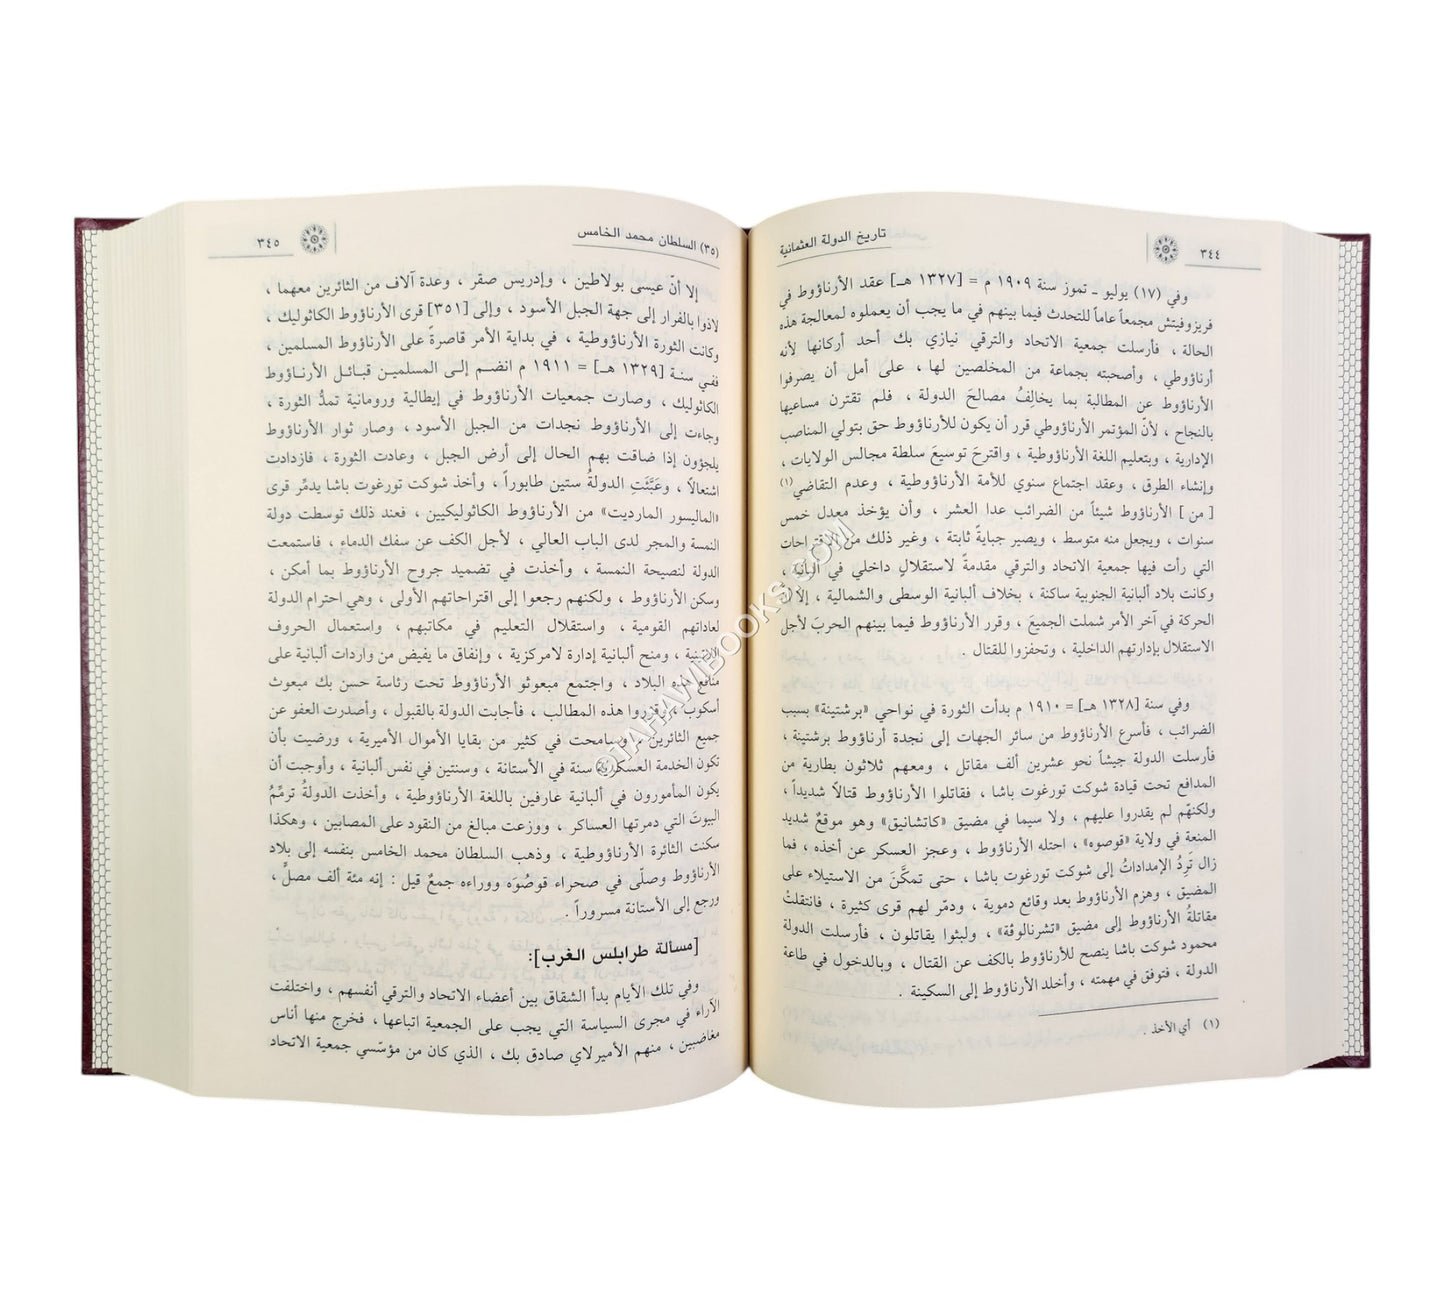 ٣٤٤
تاريخ الدولة العثمانية
وفي (١٧) يوليو ـ تموز سنة ١٩٠٩ م = [١٣٢٧ هـ] عقد الأرناؤوط في
فريزوفيتش مجمعاً عاماً للتحدث فيما بينهم في ما يجب أن يعملوه لمعالجة هذه
الحالة ، فأرسلت جمعية الاتحاد والترقي نيازي بك أحد أركانها لأنه
أرناؤوطي ، وأصحبته بجماعة من المخلصين لها ، على أمل أن يصرفوا
الأرناؤوط عن المطالبة بما يخالِفُ مصالحَ الدولة ، فلم تقترن مساعيها
بالنجاح ، لأنّ المؤتمر الأرناؤوطي قرر أن يكون للأرناؤوط حق بتولي المناصب
الإدارية ، وبتعليم اللغة الأرناؤوطية ، واقترحَ توسيعَ سلطة مجالس الولايات ،
وإنشاء الطرق ، وعقد اجتماع سنوي للأمة الأرناؤوطية ، وعدم التقاضي(١)
[ من ] الأرناؤوط شيئاً من الضرائب عدا العشر ، وأن يؤخذ معدل خمس
سنوات ، ويجعل منه متوسط ، ويصير جبايةً ثابتة ، وغير ذلك من الاقتراحات
التي رأت فيها جمعية الاتحاد والترقي مقدمةً لاستقلالٍ داخلي في ألبانية ،
وكانت بلاد ألبانية الجنوبية ساكنة ، بخلاف ألبانية الوسطى والشمالية ، إلا أن
الحركة في آخر الأمر شملت الجميعَ ، وقرر الأرناؤوط فيما بينهم الحربَ لأجل
الاستقلال بإدارتهم الداخلية ، وتحفزوا للقتال .
وفي سنة [١٣٢٨ هـ] = ١٩١٠ م بدأت الثورة في نواحي «برشتينة» بسبب
الضرائب ، فأسرع الأرناؤوط من سائر الجهات إلى نجدة أرناؤوط برشتينة ،
فأرسلت الدولة جيشاً نحو عشرين ألف مقاتل ، ومعهم ثلاثون بطارية من
المدافع تحت قيادة شوكت تورغوت باشا ، فقاتلوا الأرناؤوط قتالاً شديداً ،
ولكنّهم لم يقدروا عليهم ، ولا سيما في مضيق «كاتشانيق» وهو موقعٌ شديد
المنعة في ولاية «قوصوه» ، احتله الأرناؤوط ، وعجز العسكر عن أخذه ، فما
زال تَرِدُ الإمداداتُ إلى شوكت تورغوت باشا ، حتى تمكَّنَ من الاستيلاء على
المضيق ، وهزم الأرناؤوط بعد وقائع دموية ، ودمّر لهم قرى كثيرة ، فانتقلتْ
مقاتلةُ الأرناؤوط إلى مضيق «تشرنالوڤة» ، ولبثوا يقاتلون ، فأرسلت الدولة
محمود شوكت باشا ينصح للأرناؤوط بالكف عن القتال ، وبالدخول في طاعة
الدولة ، فتوفق في مهمته ، وأخلد الأرناؤوط إلى السكينة .
(١) أي الأخذ .
(٣٥) السلطان محمد الخامس
٣٤٥
إلا أنّ عيسى بولاطين ، وإدريس صقر ، وعدة آلاف من الثائرين معهما ،
لاذوا بالفرار إلى جهة الجبل الأسود ، وإلى [٣٥١] قرى الأرناؤوط الكاثوليك ،
وكانت الثورة الأرناؤوطية ، في بداية الأمر قاصرةً على الأرناؤوط المسلمين ،
ففي سنة [١٣٢٩ هـ] = ١٩١١ م انضم إلى المسلمين قبائل الأرناؤوط
الكاثوليك ، وصارت جمعيات الأرناؤوط في إيطالية ورومانية تمدُّ الثورة ،
وجاءت إلى الأرناؤوط نجدات من الجبل الأسود ، وصار ثوار الأرناؤوط
يلجؤون إذا ضاقت بهم الحال إلى أرض الجبل ، وعادت الثورة ، فازدادت
اشتعالاً ، وعَبَّئَتِ الدولةُ ستين طابوراً ، وأخذ شوكت تورغوت باشا يدمِّر قرى
«الماليسور المارديت» من الأرناؤوط الكاثوليكيين ، فعند ذلك توسطت دولة
النمسة والمجر لدى الباب العالي ، لأجل الكف عن سفك الدماء ، فاستمعت
الدولة لنصيحة النمسة ، وأخذت في تضميد جروح الأرناؤوط بما أمكن ،
وسكن الأرناؤوط ، ولكنهم رجعوا إلى اقتراحاتهم الأولى ، وهي احترام الدولة
لعاداتهم القومية ، واستقلال التعليم في مكاتبهم ، واستعمال الحروف
اللاتينية ، ومنح ألبانية إدارة لامركزية ، وإنفاق ما يفيض من واردات ألبانية على
منافع هذه البلاد ، واجتمع مبعوثو الأرناؤوط تحت رئاسة حسن بك مبعوث
أسكوب ، وقرروا هذه المطالب ، فأجابت الدولة بالقبول ، وأصدرت العفو عن
جميع الثائرين ، وسامحت في كثير من بقايا الأموال الأميرية ، ورضيت بأن
تكون الخدمة العسكرية سنة في الأستانة ، وسنتين في نفس ألبانية ، وأوجبت أن
يكون المأمورون في ألبانية عارفين باللغة الأرناؤوطية ، وأخذت الدولةُ ترمِّمُ
البيوتَ التي دمرتها العساكر ، ووزعت مبالغ من النقود على المصابين ، وهكذا
سكنت الثائرة الأرناؤوطية ، وذهب السلطان محمد الخامس بنفسه إلى بلاد
الأرناؤوط وصلّى في صحراء قوصُوَه ووراءه جمعٌ قيل : إنه مئة ألف مصلٍّ ،
ورجع إلى الأستانة مسروراً .
[مسالة طرابلس الغرب]:
وفي تلك الأيام بدأ الشقاق بين أعضاء الاتحاد والترقي أنفسهم ، واختلفت
الآراء في مجرى السياسة التي يجب على الجمعية اتباعها ، فخرج منها أناس
مغاضبين ، منهم الأميرلاي صادق بك ، الذي كان من مؤسّسي جمعية الاتحاد
©TAHAWIBOOKS.COM